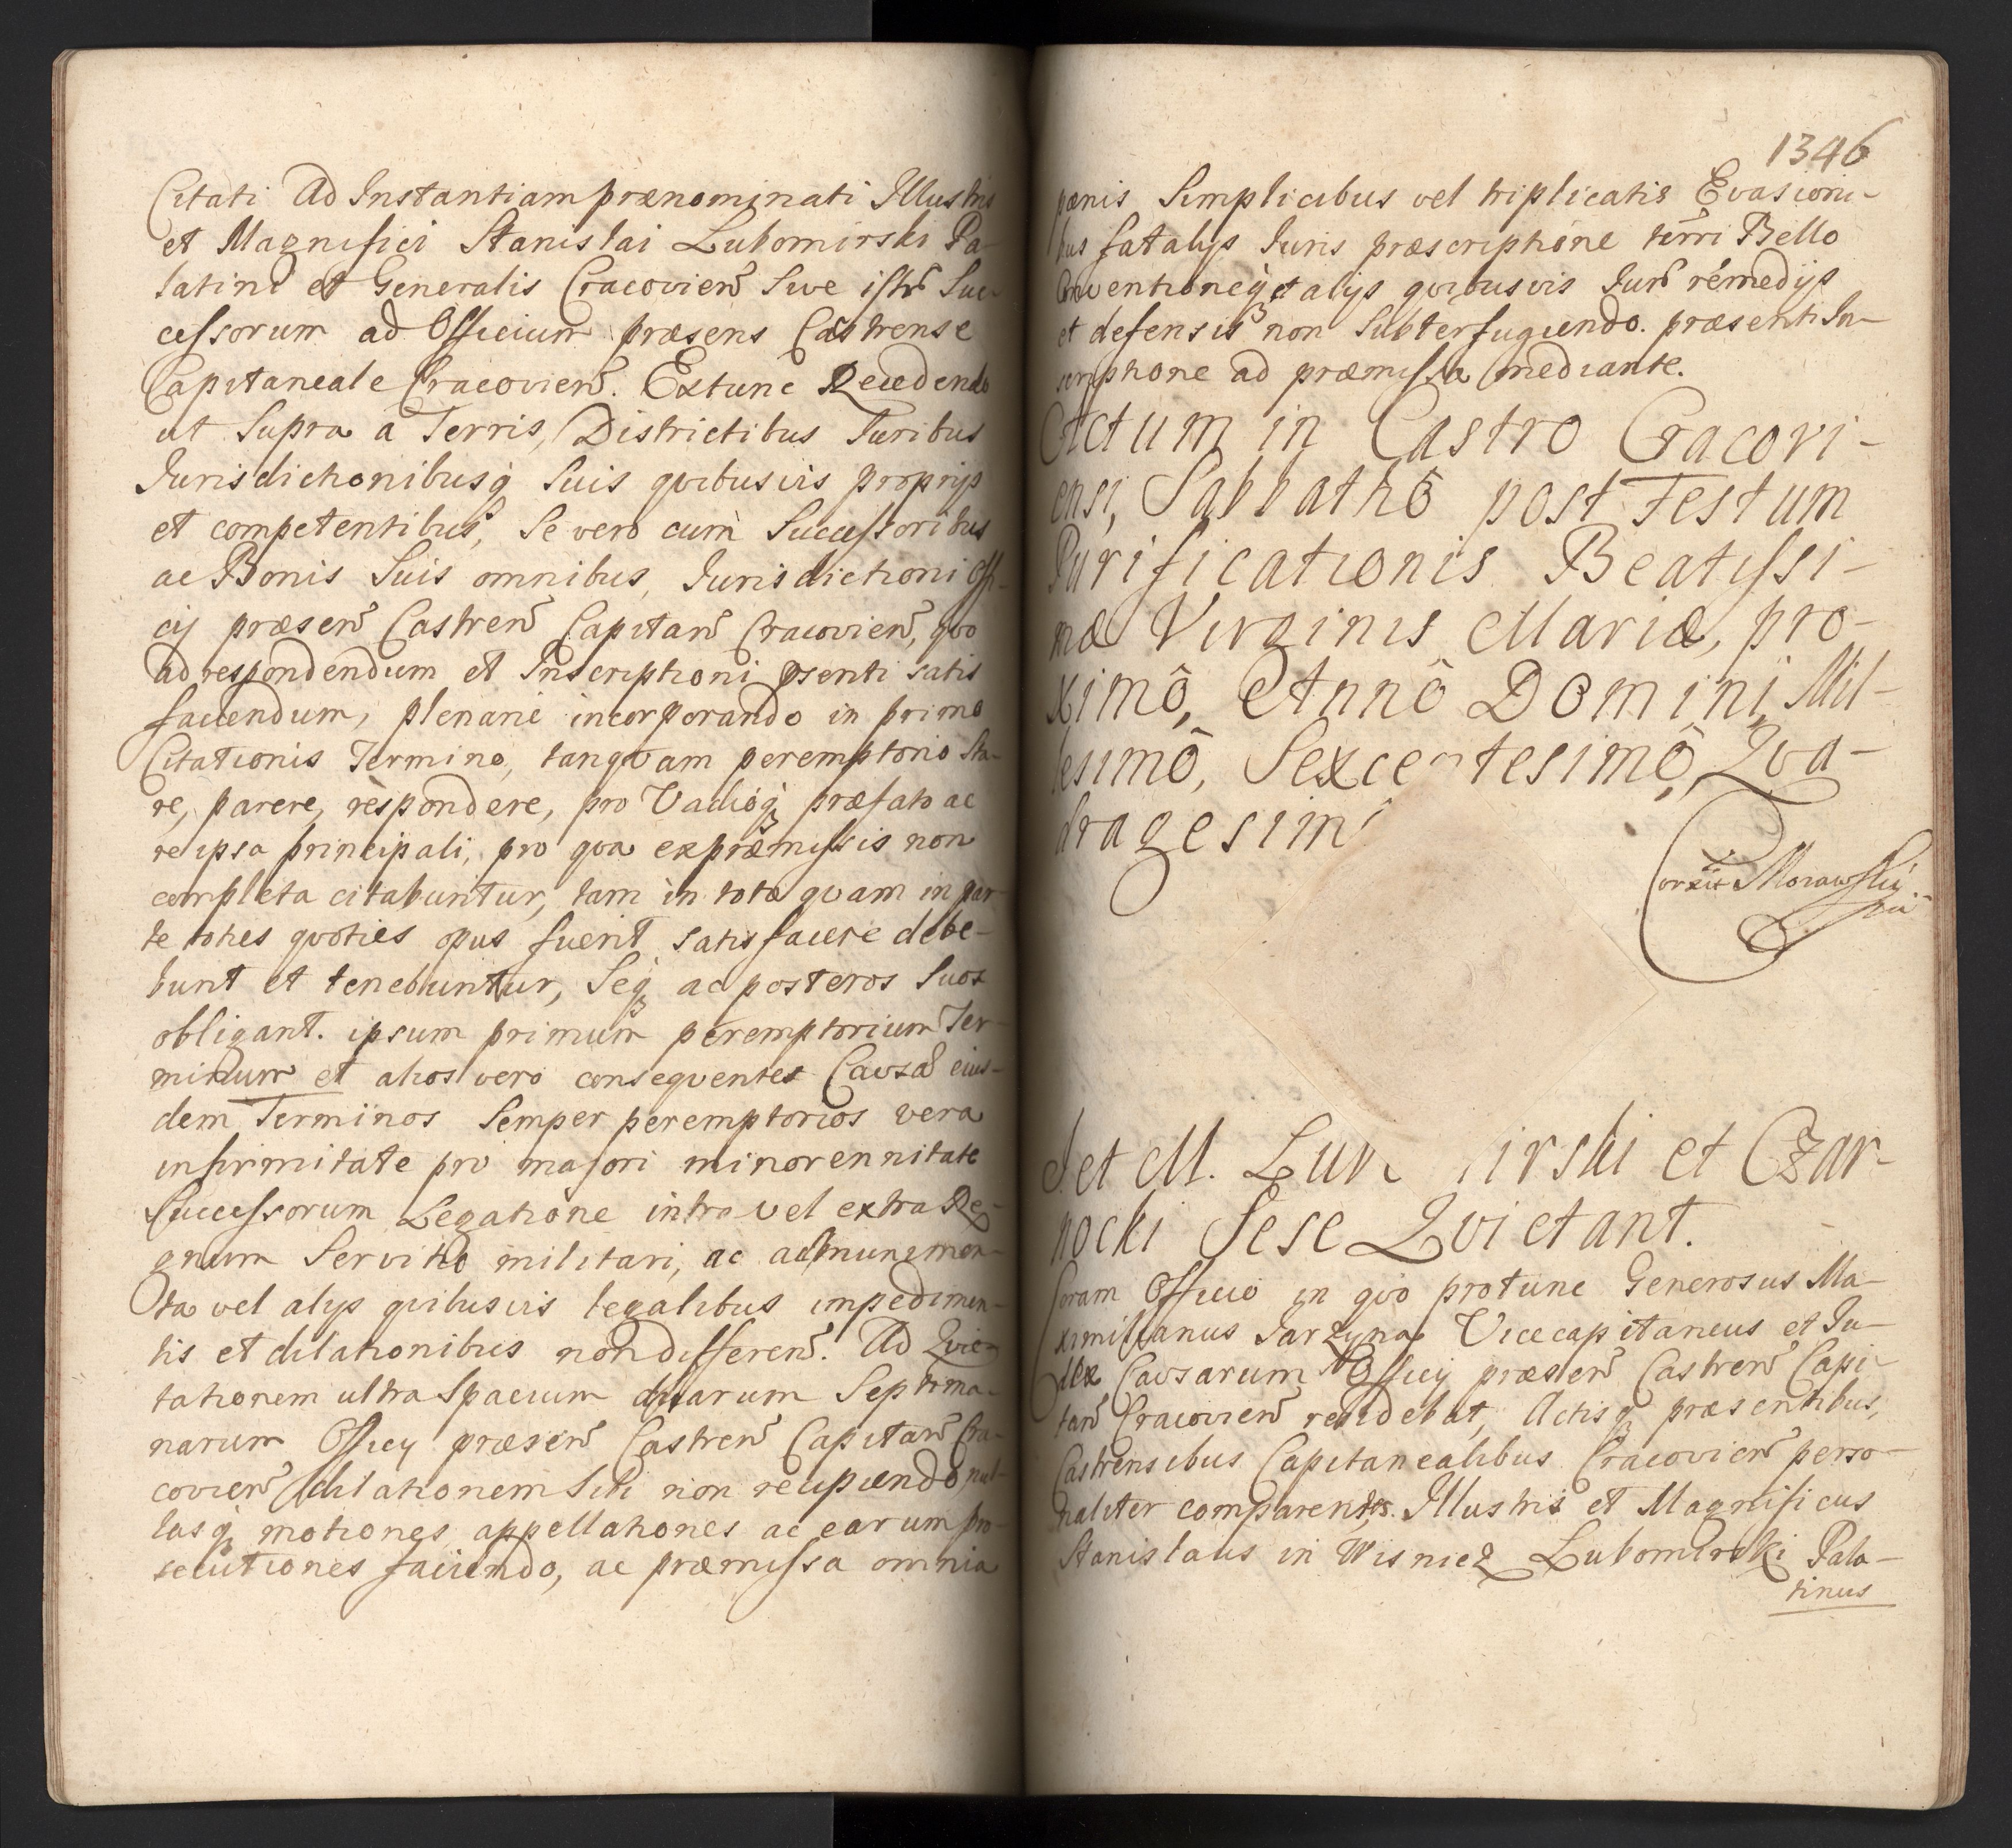 Citati Ad Instantiam prænominati Illustris
et Magnifici Stanislai Lubomirski Pa-
latini et Generalis Cracovien̄ Sive istr̄ Suc-
cessorum ad Officium præsens Castrense
Capitaneale Cracovien̄. Extunc Recedendo
ut Supra a Terris, Districtibus Iuribus
Iurisdictionibusq̨ Suis qvibusvis proprijs
et competentibus, Se vero cum Successoribus
ac Bonis Suis omnibus, Iurisdictioni Offi-
cij præsen̄ Castren̄ Capitan̄ Cracovien̄, qvo
ad respondendum et Inscriptioni p̄senti satis
faciendum, plenarie incorporando in primo
Citationis Termino, tanqvam peremptorio Sta-
re, parere, respondere, pro Vadioq̨ præfato ac
re ipsa principali, pro qva expræmissis non
completa citabuntur, tam in toto qvam in par-
te toties qvoties opus fuerit satis facere debe-
bunt et tenebuntur, Seq̨ ac posteros Suos
obligant. ipsum primum peremptorium Ter-
minum et alios vero conseqventes Causæ eius-
dem Terminos Semper peremptorios vera
infirmitate pro majori minorennitate
Successorum Legatione intra vel extra Re-
gnum Servitio militari, ac ad munimen-
ta vel alijs qvibusvis legalibus impedimen-
tis et dilationibus non differen̄. Ad Qvie-
tationem ultra Spacium duarum Septima-
narum Officij præsen̄ Castren̄ Capitan̄ Cra-
covien̄ dilationem Sibi non recipiendo nul-
lasq̨ motiones appellationes ac earum pro-
secutiones faciendo, ac præmissa omnia
1346
pœnis Simplicibus vel triplicatis Evasioni-
bus fatalijs Iuris præscriptione terri Bello
Conventioneq̨ et alijs qvibusvis Iur̄ remedijs
et defensis non Subterfugiendo. præsenti In-
scriptione ad præmissa mediante.
Actum in Castro Cracovi-
ensi, Sabbathô post Festum
Purificationis Beatissi-
mæ Virginis Mariæ, pro-
ximô, Annô Domini Mil-
lesimô, Sexcentesimô, Qva-
dragesim
Corxit Morawski
I. et M. Lub irski et Czar-
nocki Sese Qvietant.
Coram Officio in qvo protunc Generosus Ma-
ximilianus Jarzyna Vicecapitaneus et Iu-
dex Causarum Officij præsen̄ Castren̄ Capi-
tan̄ Cracovien̄ residebat, Actisq̨ præsentibus,
Castrensibus Capitanealibus Cracovien̄ perso-
naliter comparentes. Illustris et Magnificus
Stanislaus in Wisnicz Lubomirski Pala-
tinus